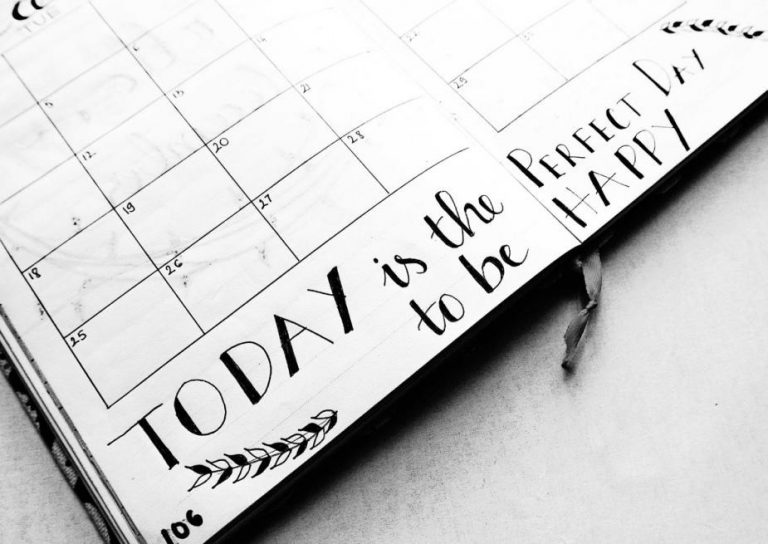 TUE
5
12 13 14
18 19 20 21 22
25 26 27 28 29
TODAY is the PERFECT DAY
to be HAPPY
106